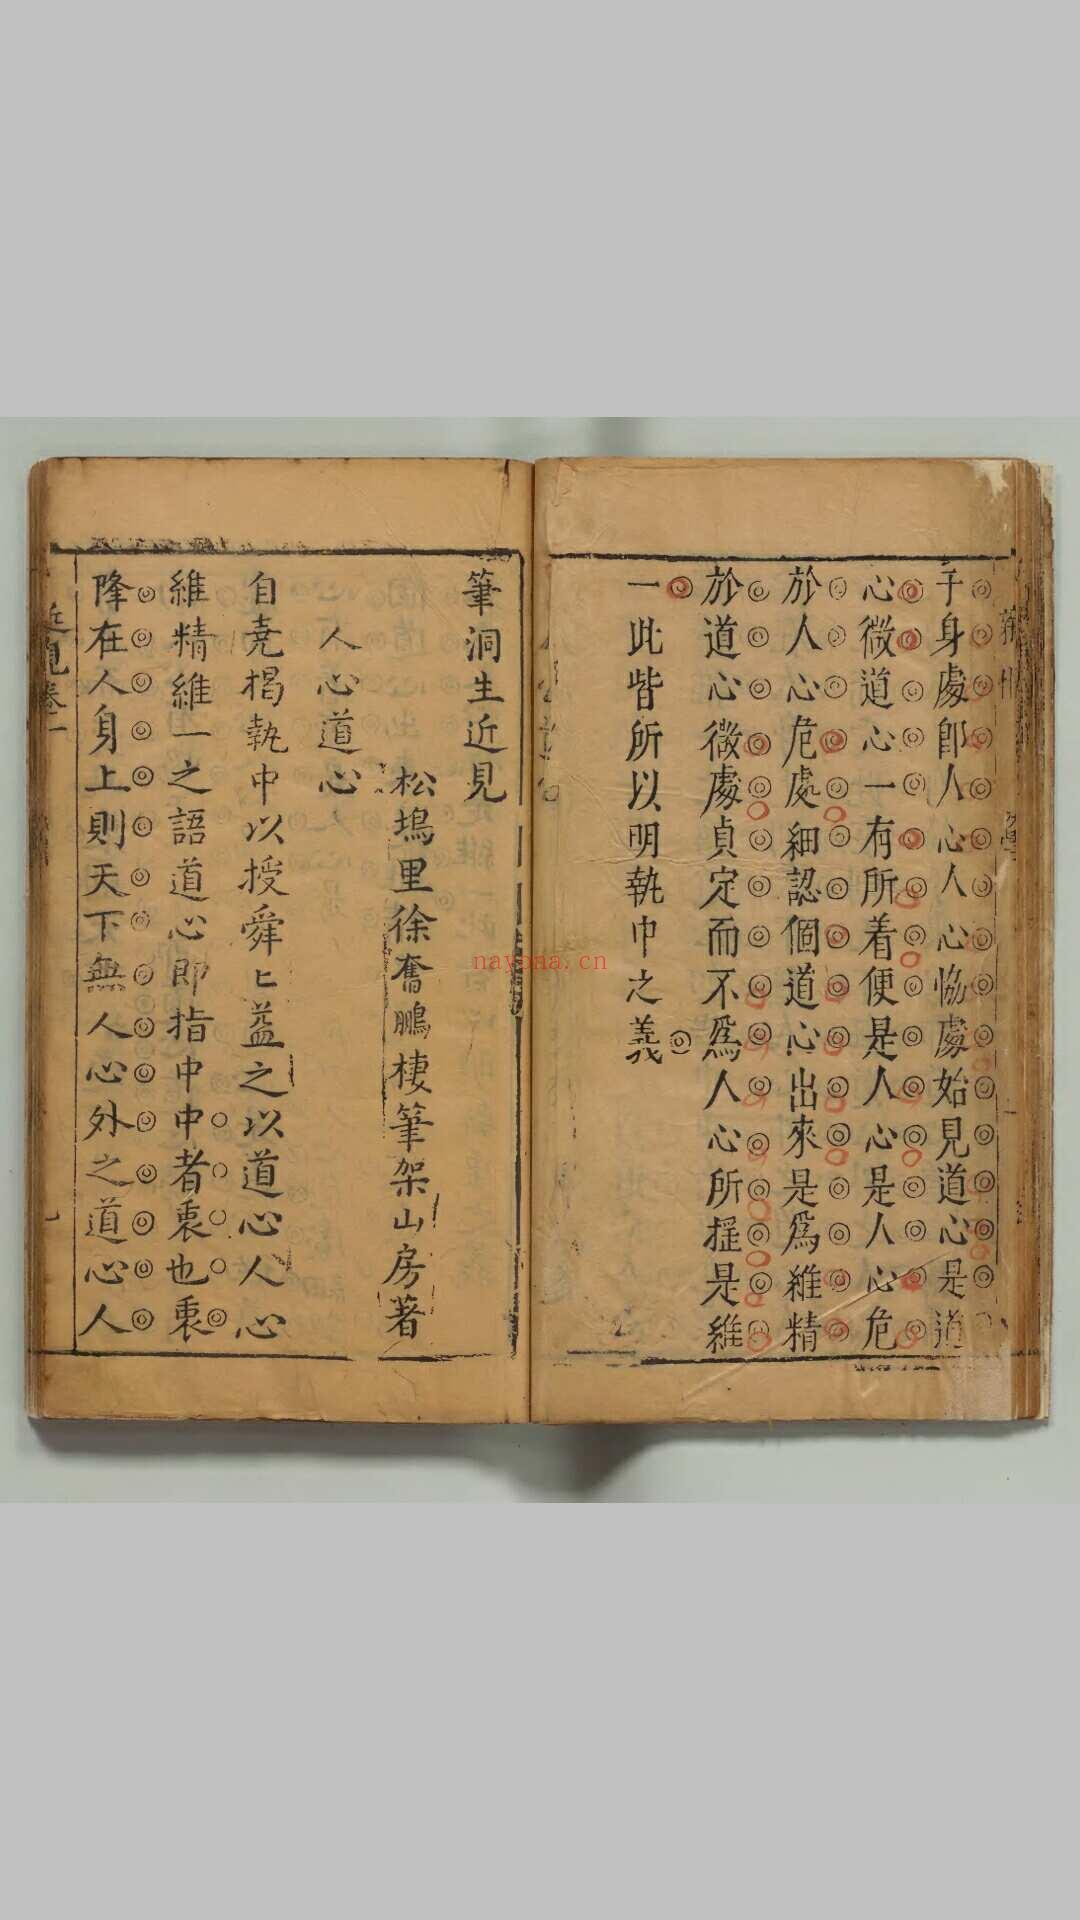 于身處即人心人心恊處始見道心是道
心微道心一有所着便是人心是人心危
於人心危處細認個道心出來是爲維精
於道心微處貞定而不爲人心所搖是維
一此皆所以明執中之義
筆洞生近見
松塢里徐奮鵬棲筆架山房著
人心道心
自堯揭執中以授舜匕益之以道心人心
維精維一之語道心即指中中者衷也衷
降在人身上則天下無人心外之道心人
近見卷一
nayona.cn